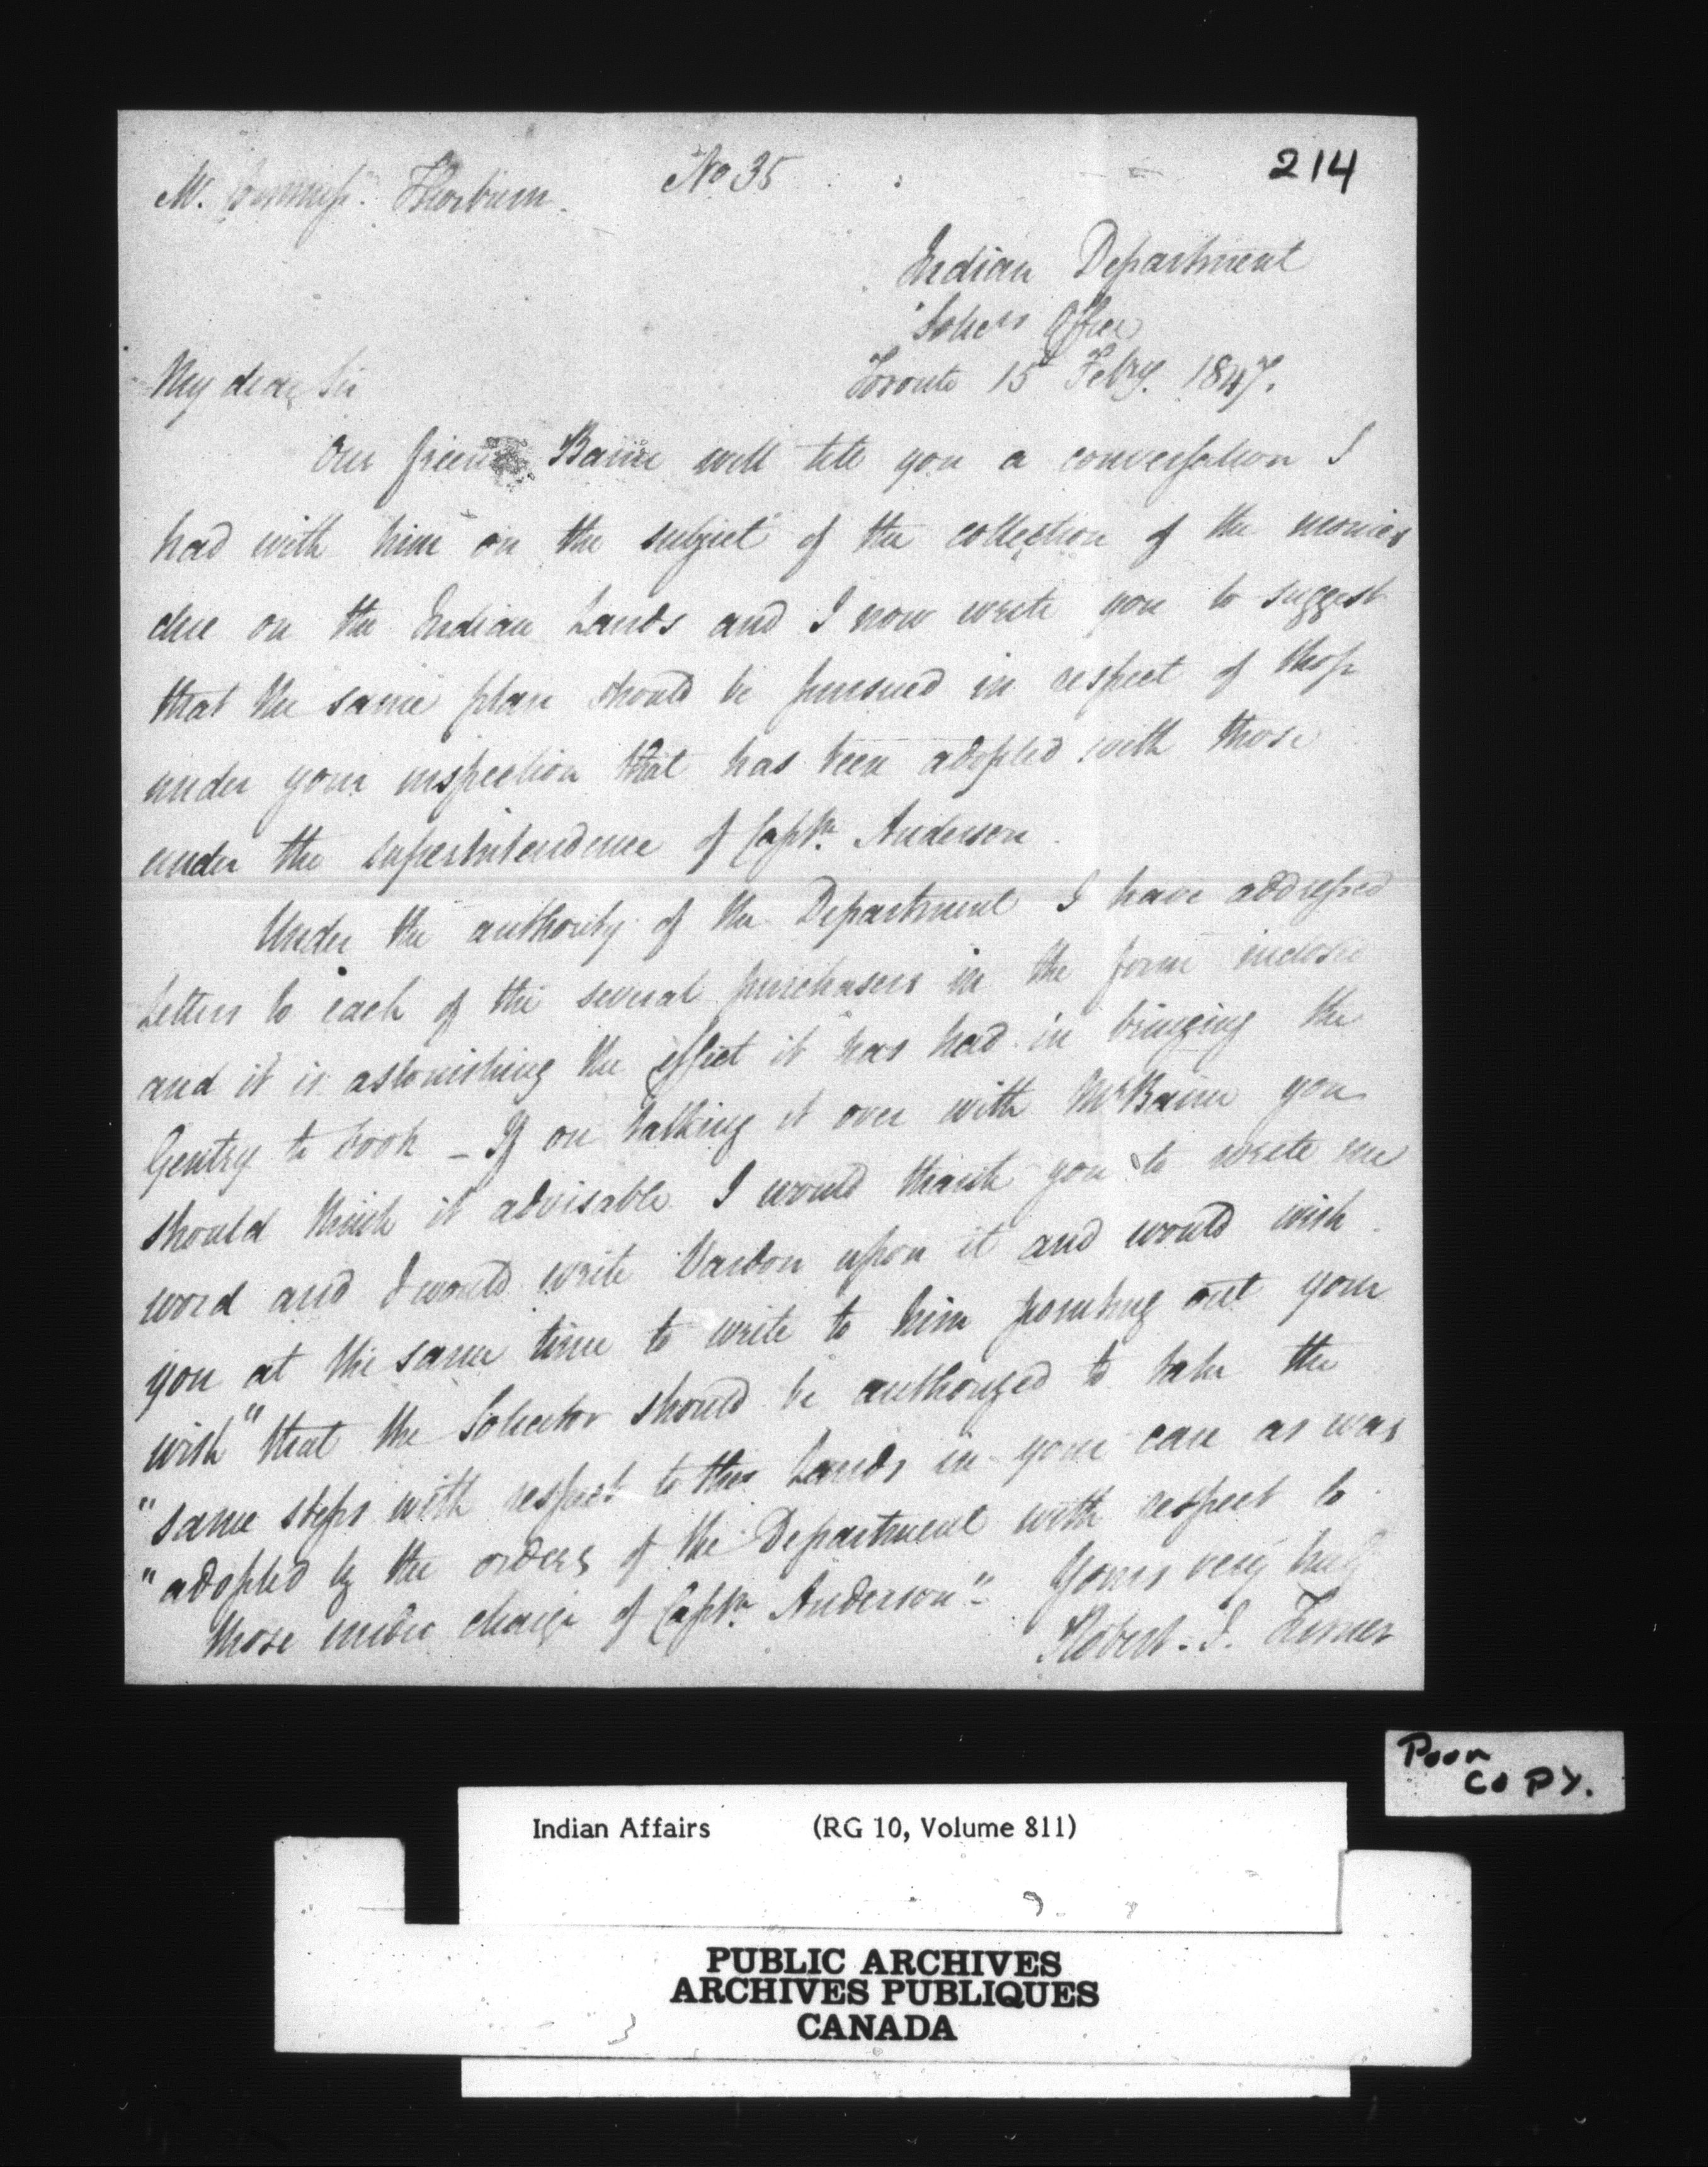 No 35
214
Mr. Commissr. Thorburn
Indian Department
Solrs Office
Toronto 15th Febry. 1847.
My dear Sir
Our friend Bain will tell you a conversation I
had with him on the subject of the collection of the monies
due on the Indian Lands and I now write you to suggest
that the same plan should be pursued in respect of those
under your inspection that has been adopted with those
under the superintendence of Captn. Anderson.
Under the authority of the Department I have addressed
Letters to each of the several purchasers in the form inclosed
and it is astonishing the effect it has had in bringing the
Gentry to book _ If on talking it over with Mr Bain you
should think it advisable I would thank you to write me
word and I would write Vardon upon it and would wish
you at the same time to write to him pointing out your
wish "that the Solicitor should be authorized to take the
"same steps with respect to the Lands in your care as was
"adopted by the orders of the Department with respect to
those under charge of Captn. Anderson".
Yours very truly
Robert. J. Turner
Poor
COPY.
Indian Affairs (RG 10, Volume 811)
PUBLIC ARCHIVES
ARCHIVES PUBLIQUES
CANADA